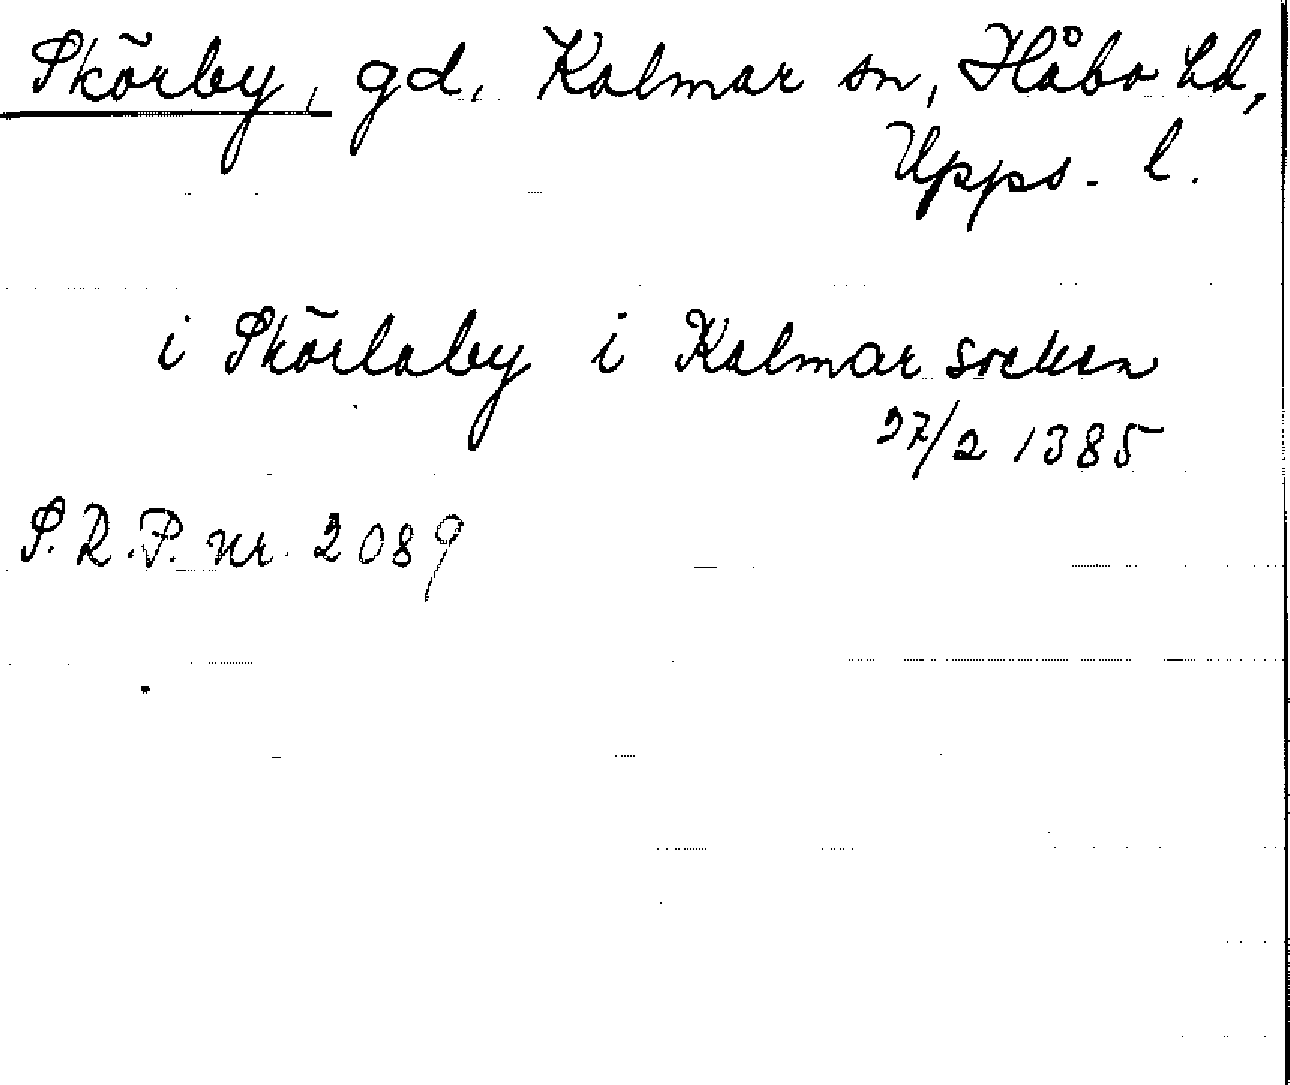 Skörby, gd, Kalmar sn, Håbo hd,
Upps. l.
i Skörlaby i Kalmar socken
27/2 1385
S.R.P. nr. 2089